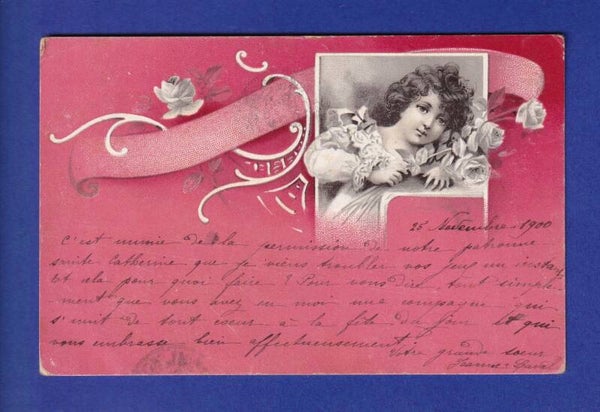 25 Novembre 1900
C'est munie de la permission de notre patronne
sainte Catherine que je viens troubler vos jeux un instant
Et cela pour quoi faire ? Pour vous dire tout simple-
ment que vous avez en moi une compagne qui
s'unit de tout cœur à la fête du jour Et qui
vous embrasse bien affectueusement
Votre grande sœur
Jeanne